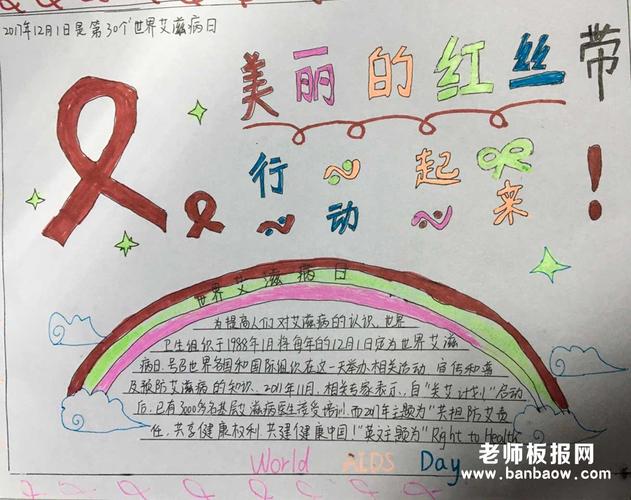 2017年12月1日是第30个世界艾滋病日
美丽的红丝带
行动起来!
世界艾滋病日
为提高人们对艾滋病的认识,世界
卫生组织于1988年1月将每年的12月1日定为世界艾滋
病日,号召世界各国和国际组织在这一天举办相关活动,宣传和普
及预防艾滋病的知识。2011年11月,相关专家表示,自“关艾计划”启动
后,已有3000多名基层艾滋病医生接受培训而2017年主题为“共担防艾责
任,共享健康权利,共建健康中国!”英文主题为“Right to Health
World AIDS Day
老师板报网
www.banbaow.com